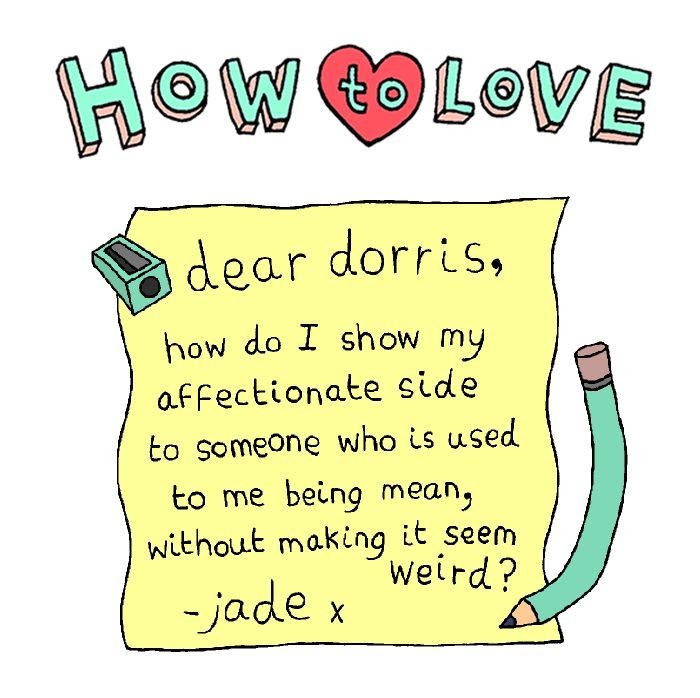 HOW to LOVE
dear dorris,
how do I show my
affectionate side
to someone who is used
to me being mean,
without making it seem
weird?
-jade x